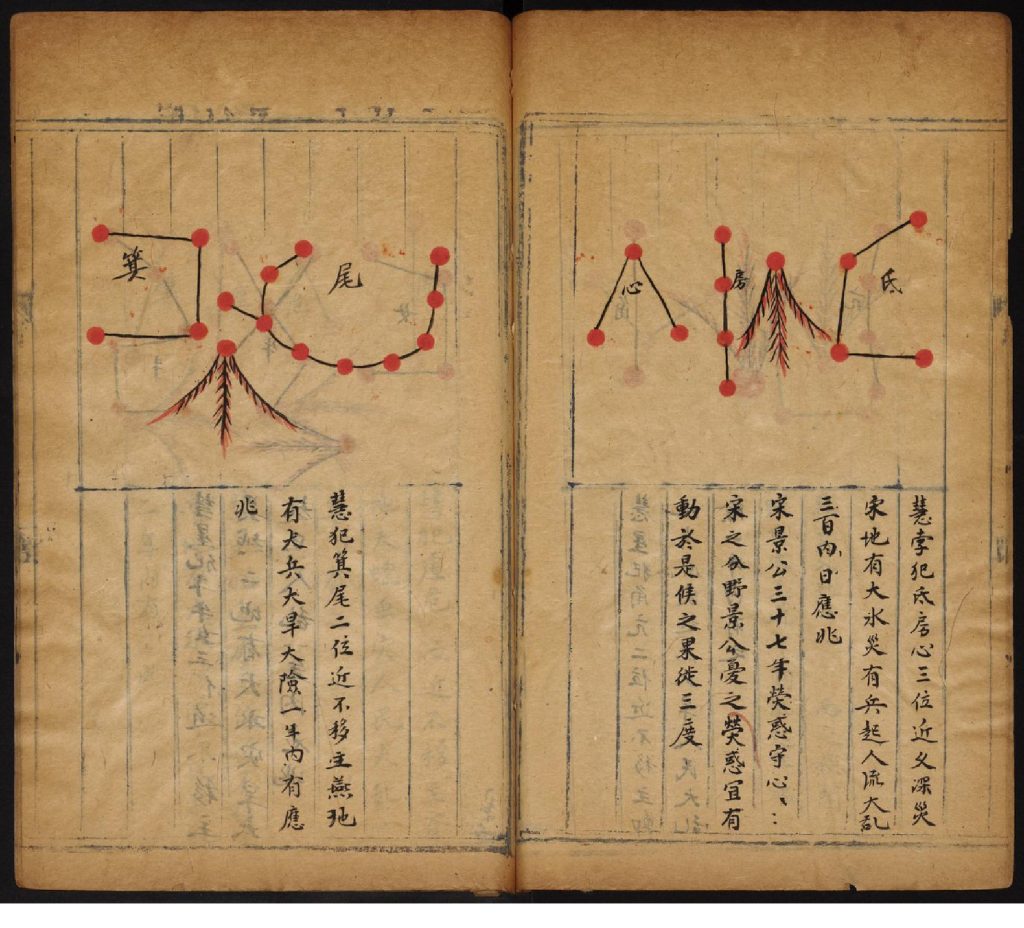 氐
房
心
慧孛犯氐房心三位近久深災
宋地有大水災有兵起人流大乱
三百内日應兆
宋景公三十七年熒惑守心〻
宋之分野景公憂之熒惑宜有
動於是候之果徙三度
尾
箕
慧犯箕尾二位近不移主燕地
有大兵大旱大險一年内有應
兆